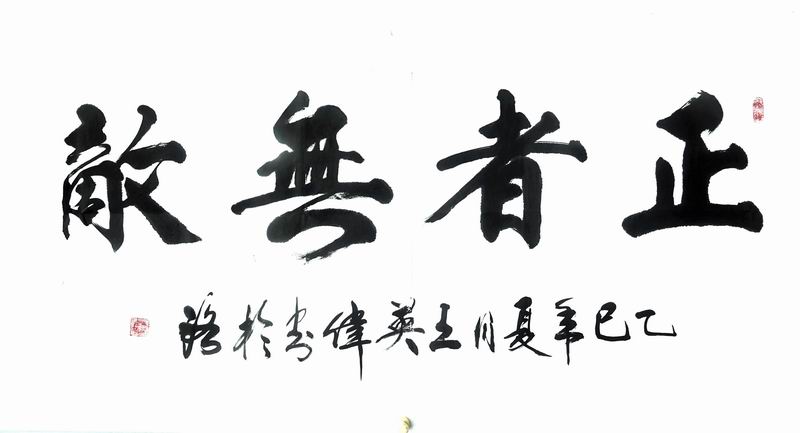 正者無敵
乙巳年夏月王英偉書於洛